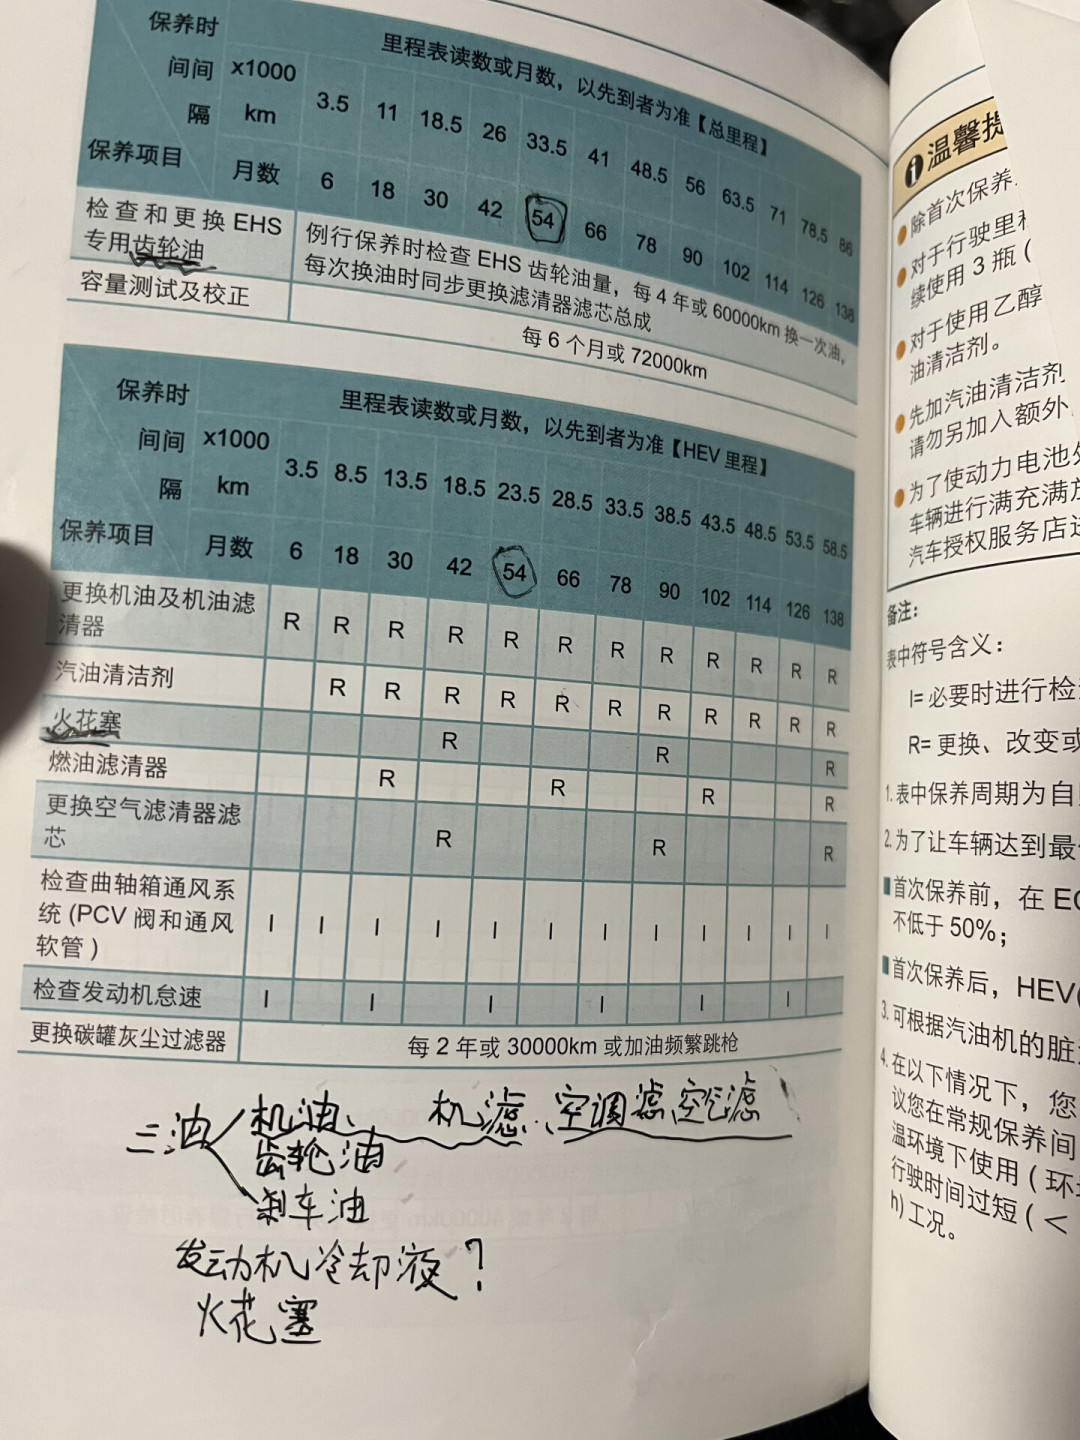 保养时
间间
隔
保养项目
里程表读数或月数，以先到者为准【总里程】
x1000
km
3.5 11 18.5 26 33.5 41 48.5 56 63.5 71 78.5 86
月数 6 18 30 42 54 66 78 90 102 114 126 138
检查和更换 EHS
专用齿轮油
例行保养时检查 EHS 齿轮油量，每 4 年或 60000km 换一次油，
每次换油时同步更换滤清器滤芯总成
容量测试及校正
每 6 个月或 72000km
保养时
间间
隔
保养项目
里程表读数或月数，以先到者为准【HEV 里程】
x1000
km
3.5 8.5 13.5 18.5 23.5 28.5 33.5 38.5 43.5 48.5 53.5 58.5
月数 6 18 30 42 54 66 78 90 102 114 126 138
更换机油及机油滤
清器
R R R R R R R R R R R R
汽油清洁剂 R R R R R R R R R R R
火花塞 R R R
燃油滤清器 R R R R
更换空气滤清器滤
芯
R R R
检查曲轴箱通风系
统 (PCV 阀和通风
软管 )
I I I I I I I I I I I I
检查发动机怠速 I I I I I I
更换碳罐灰尘过滤器 每 2 年或 30000km 或加油频繁跳枪
三油 机油、 机滤、空调滤、空气滤
齿轮油
刹车油
发动机冷却液？
火花塞
温馨提
除首次保养
对于行驶里
续使用 3 瓶 (
对于使用乙醇
油清洁剂。
先加汽油清洁剂
请勿另加入额外
为了使动力电池
车辆进行满充满放
汽车授权服务店
备注：
表中符号含义：
I= 必要时进行检
R= 更换、改变或
1. 表中保养周期为自
2. 为了让车辆达到最
首次保养前，在 EC
不低于 50%；
首次保养后，HEV
3. 可根据汽油机的脏
4. 在以下情况下，您
议您在常规保养间
温环境下使用 ( 环
行驶时间过短 ( <
h) 工况。